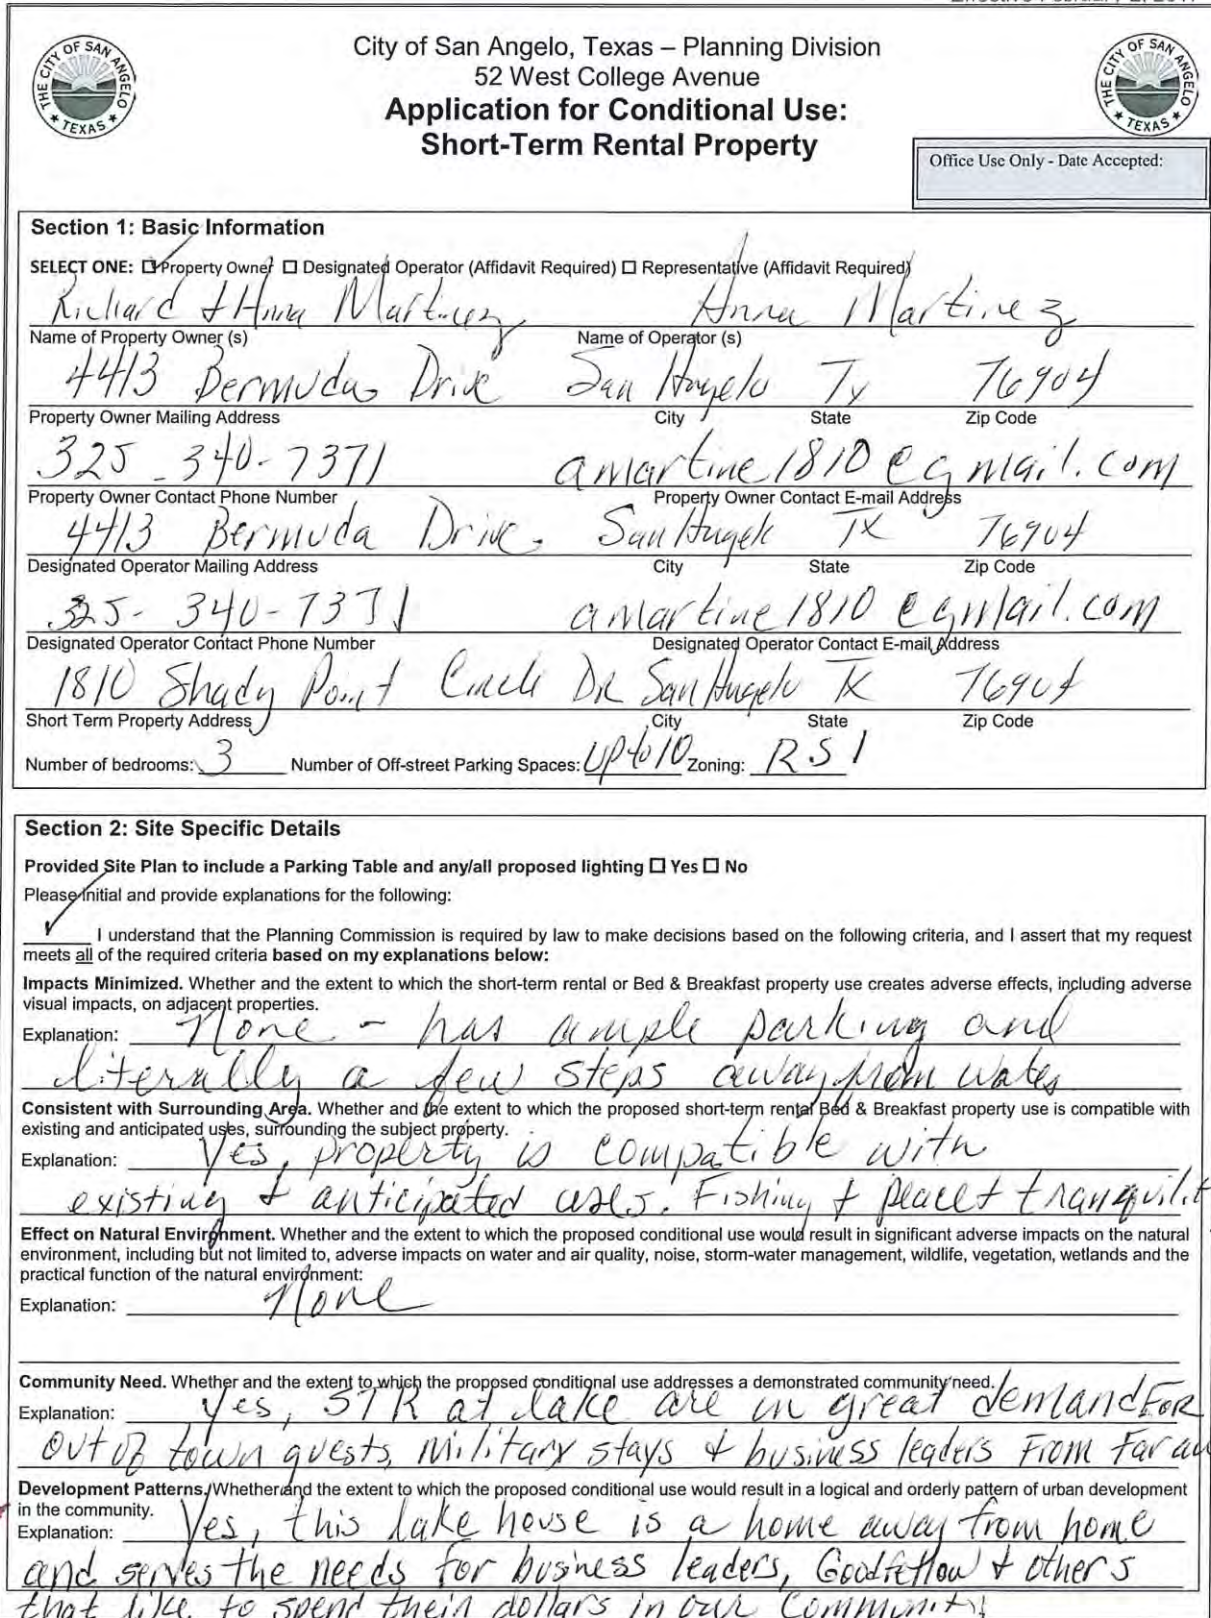 City of San Angelo, Texas – Planning Division
52 West College Avenue
Application for Conditional Use:
Short-Term Rental Property
THE CITY OF SAN ANGELO TEXAS
THE CITY OF SAN ANGELO TEXAS
Office Use Only - Date Accepted:
Section 1: Basic Information
SELECT ONE: ☑ Property Owner ☐ Designated Operator (Affidavit Required) ☐ Representative (Affidavit Required)
Richard & Anna Martinez Anna Martinez
Name of Property Owner (s) Name of Operator (s)
4413 Bermuda Drive San Angelo Tx 76904
Property Owner Mailing Address City State Zip Code
325-340-7371 amartine1810@gmail.com
Property Owner Contact Phone Number Property Owner Contact E-mail Address
4413 Bermuda Drive. San Angelo TX 76904
Designated Operator Mailing Address City State Zip Code
325-340-7371 amartine1810@gmail.com
Designated Operator Contact Phone Number Designated Operator Contact E-mail Address
1810 Shady Point Circle DR San Angelo TX 76904
Short Term Property Address City State Zip Code
Number of bedrooms: 3 Number of Off-street Parking Spaces: Up to 10 Zoning: RS1
Section 2: Site Specific Details
Provided Site Plan to include a Parking Table and any/all proposed lighting ☐ Yes ☐ No
Please initial and provide explanations for the following:
✓ I understand that the Planning Commission is required by law to make decisions based on the following criteria, and I assert that my request
meets all of the required criteria based on my explanations below:
Impacts Minimized. Whether and the extent to which the short-term rental or Bed & Breakfast property use creates adverse effects, including adverse
visual impacts, on adjacent properties.
Explanation: None - has ample parking and
literally a few steps away from water
Consistent with Surrounding Area. Whether and the extent to which the proposed short-term rental Bed & Breakfast property use is compatible with
existing and anticipated uses, surrounding the subject property.
Explanation: Yes, property is compatible with
existing & anticipated uses. Fishing & place t tranquilit
Effect on Natural Environment. Whether and the extent to which the proposed conditional use would result in significant adverse impacts on the natural
environment, including but not limited to, adverse impacts on water and air quality, noise, storm-water management, wildlife, vegetation, wetlands and the
practical function of the natural environment:
Explanation: None
Community Need. Whether and the extent to which the proposed conditional use addresses a demonstrated community need.
Explanation: Yes, STR at lake are in great demand For
out of town guests, Military stays & business leaders From Far
Development Patterns. Whether and the extent to which the proposed conditional use would result in a logical and orderly pattern of urban development
in the community.
Explanation: Yes, this lake house is a home away from home
and serves the needs for business leaders, Goodfellow & others
that like to spend their dollars in our Community!